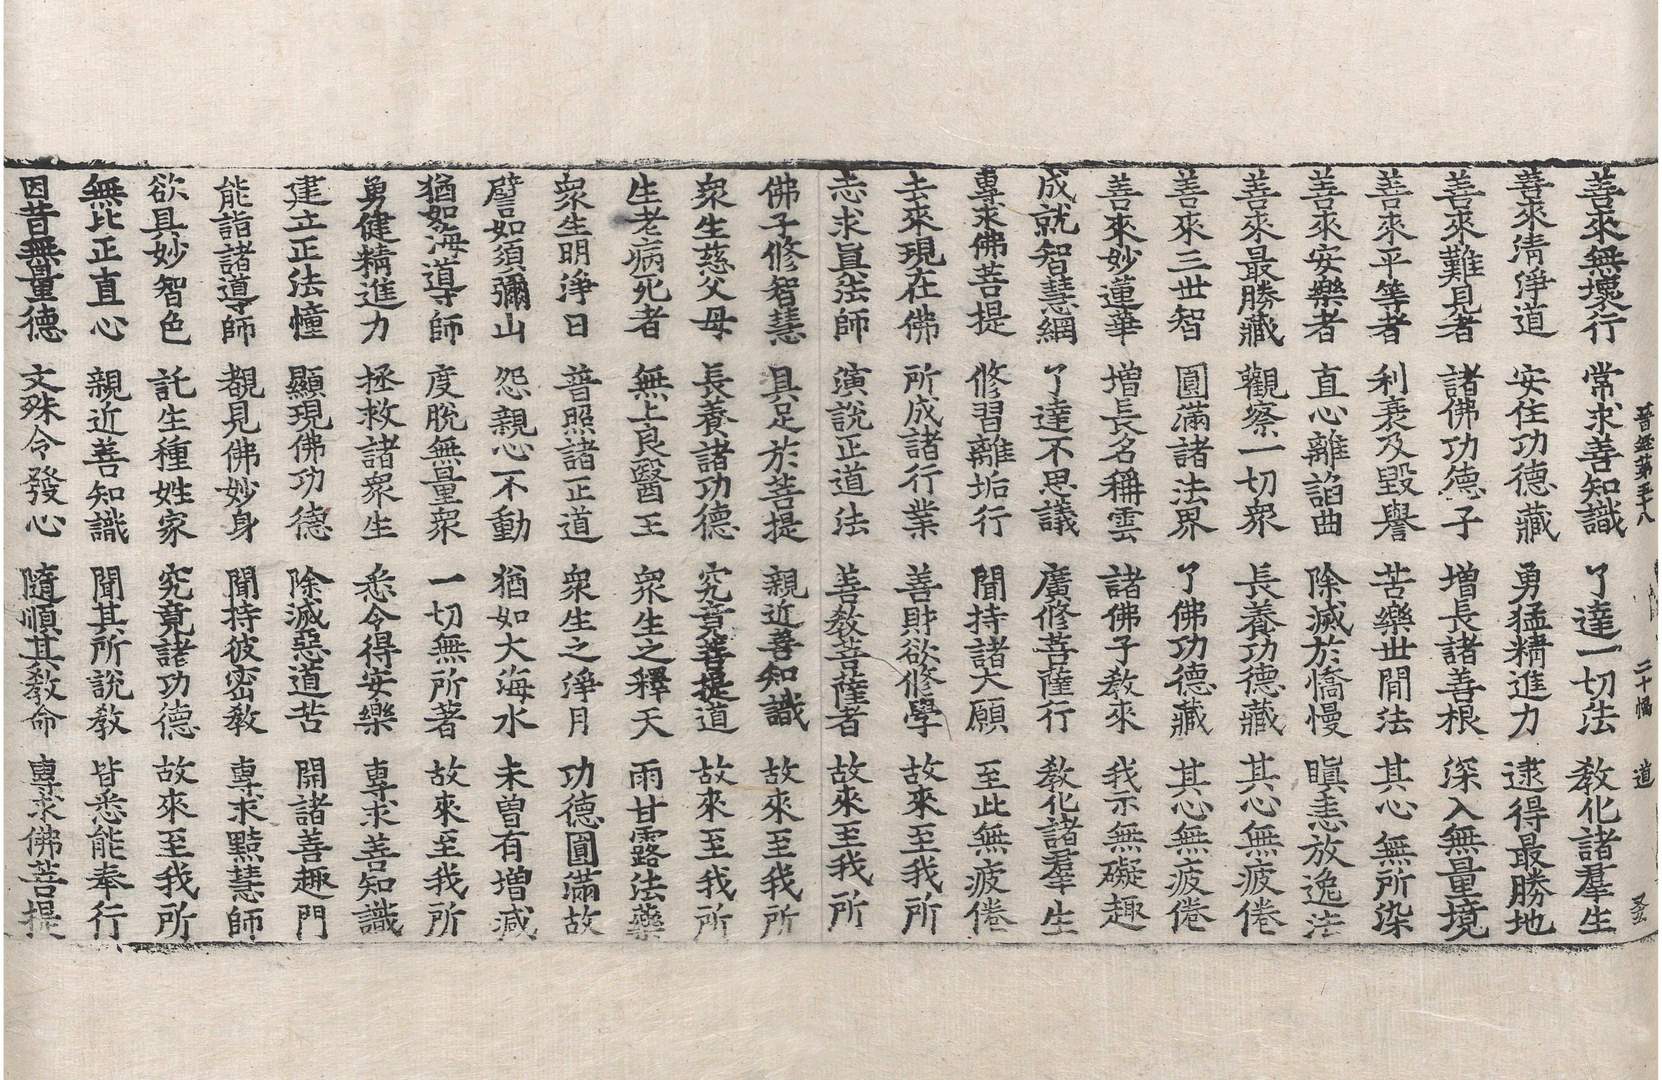 晉經第五十八 二十幅 道
善來無壞行 常求善知識 了達一切法 教化諸羣生
善來淸淨道 安住功德藏 勇猛精進力 逮得最勝地
善來難見者 諸佛功德子 增長諸善根 深入無量境
善來平等者 利衰及毀譽 苦樂世間法 其心無所染
善來安樂者 直心離諂曲 除滅於憍慢 瞋恚放逸法
善來最勝藏 觀察一切衆 長養功德藏 其心無疲倦
善來三世智 圓滿諸法界 了佛功德藏 其心無疲倦
善來妙蓮華 增長名稱雲 諸佛子教來 我示無礙趣
成就智慧網 了達不思議 廣修菩薩行 教化諸羣生
專求佛菩提 修習離垢行 聞持諸大願 至此無疲倦
去來現在佛 所成諸行業 善財欲修學 故來至我所
志求眞法師 演說正道法 善教菩薩者 故來至我所
佛子修智慧 具足於菩提 親近善知識 故來至我所
衆生慈父母 長養諸功德 究竟菩提道 故來至我所
生老病死者 無上良醫王 衆生之釋天 雨甘露法藥
衆生明淨日 普照諸正道 衆生之淨月 功德圓滿故
譬如須彌山 怨親心不動 猶如大海水 未曾有增減
猶如海導師 度脫無量衆 一切無所著 故來至我所
勇健精進力 拯救諸衆生 悉令得安樂 專求善知識
建立正法幢 顯現佛功德 除滅惡道苦 開諸善趣門
能詣諸導師 覩見佛妙身 聞持彼密教 專求黠慧師
欲具妙智色 託生種姓家 究竟諸功德 故來至我所
無比正直心 親近善知識 聞其所說教 皆悉能奉行
因昔無量德 文殊令發心 隨順其教命 專求佛菩提